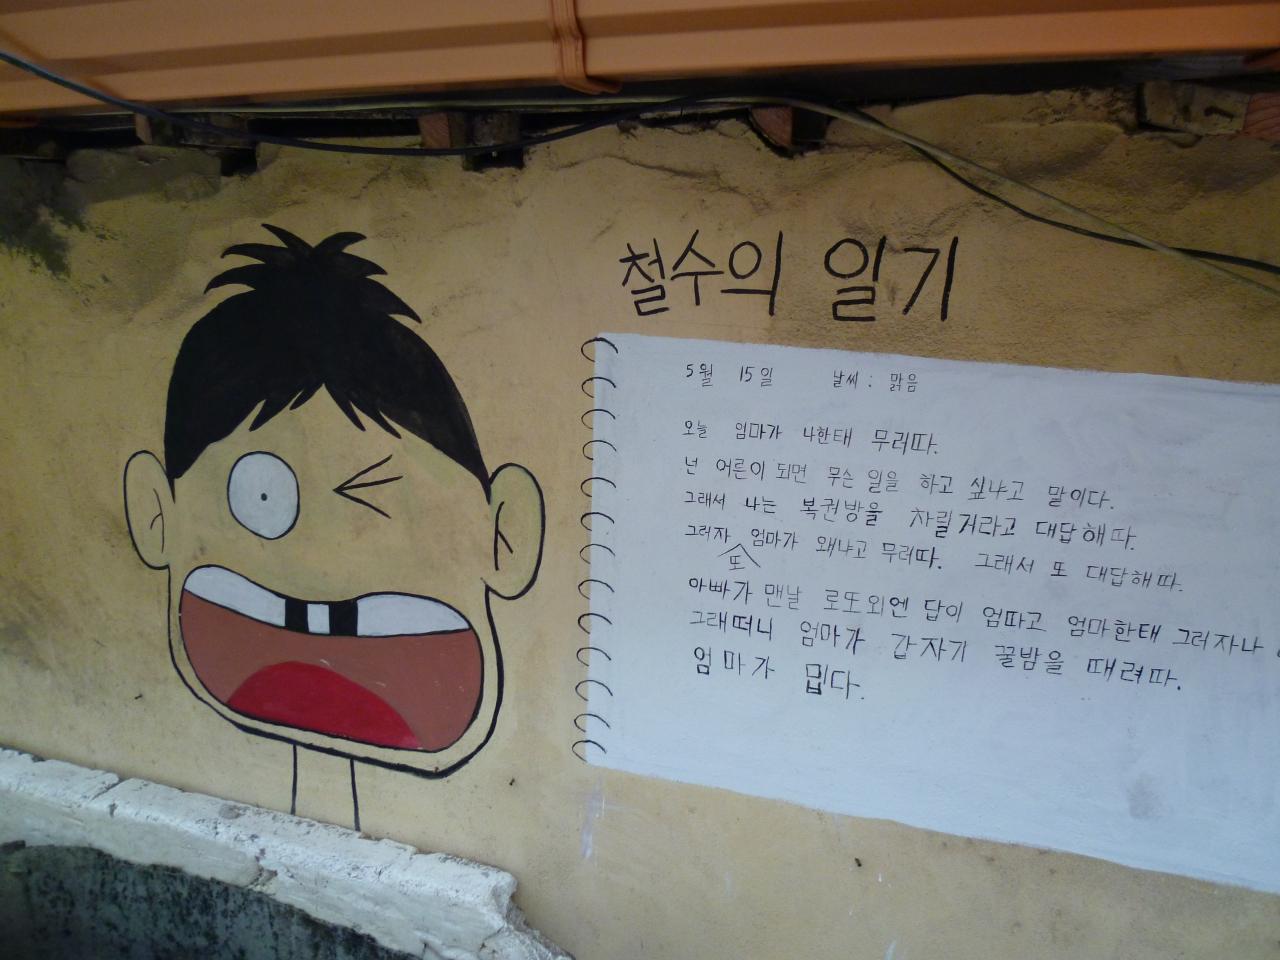 철수의 일기
5월 15일 날씨 : 맑음
오늘 엄마가 나한태 무러따.
넌 어른이 되면 무슨 일을 하고 싶냐고 말이다.
그래서 나는 복권방을 차릴거라고 대답해따.
그러자 또 엄마가 왜냐고 무러따. 그래서 또 대답해따.
아빠가 맨날 로또외엔 답이 엄따고 엄마한태 그러자나
그래떠니 엄마가 갑자기 꿀밤을 때려따.
엄마가 밉다.